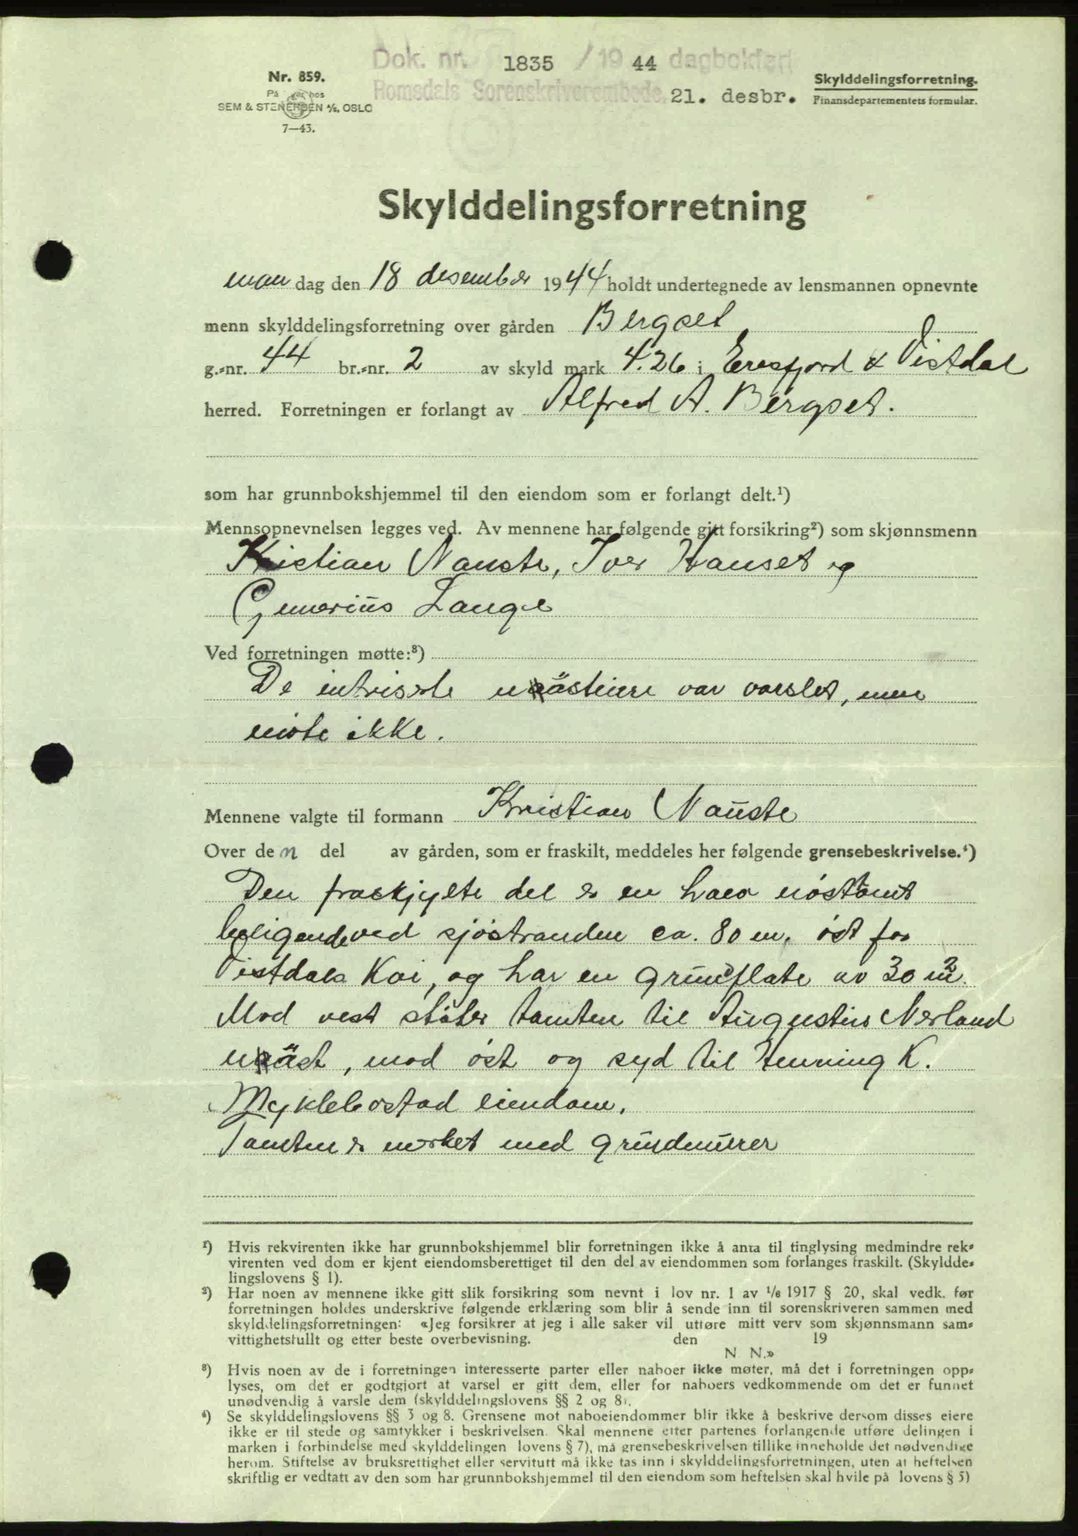 Dok. nr. 1835 / 19 44 dagbokført
Romsdals Sorenskriverembede. 21. desbr.
Nr. 859.
På hos
SEM & STENERSEN A/S, OSLO
7—43.
Skylddelingsforretning.
Finansdepartementets formular.
Skylddelingsforretning
man dag den 18 desember 1944 holdt undertegnede av lensmannen opnevnte
menn skylddelingsforretning over gården Bergset
g.-nr. 44 br.-nr. 2 av skyld mark 4.26 i Eresfjord & Vistdal
herred. Forretningen er forlangt av Alfred A. Bergset.
som har grunnbokshjemmel til den eiendom som er forlangt delt.¹)
Mennsopnevnelsen legges ved. Av mennene har følgende gitt forsikring²) som skjønnsmenn
Kristian Nauste, Iver Hanset og
Gunerius Lange
Ved forretningen møtte:³)
De intriserte nåsteiere var varslet, men
møte ikke.
Mennene valgte til formann Kristian Nauste
Over den del av gården, som er fraskilt, meddeles her følgende grensebeskrivelse.⁴)
Den fraskjylte del er en halv nøstamt
beligende ved sjøstranden ca. 80 m. øst for
Vistdals Kai, og har en grunflate av 30 m².
Mod vest støter tomten til Augustius Nerland
nåst, mod øst og syd til Henning K.
Myklebostad eiendom.
Tomten er merket med grundmurer
¹) Hvis rekvirenten ikke har grunnbokshjemmel blir forretningen ikke å anta til tinglysing medmindre rek-
virenten ved dom er kjent eiendomsberettiget til den del av eiendommen som forlanges fraskilt. (Skyldde-
lingslovens § 1).
²) Har noen av mennene ikke gitt slik forsikring som nevnt i lov nr. 1 av 1/6 1917 § 20, skal vedk. før
forretningen holdes underskrive følgende erklæring som blir å sende inn til sorenskriveren sammen med
skylddelingsforretningen: «Jeg forsikrer at jeg i alle saker vil utføre mitt verv som skjønnsmann sam-
vittighetsfullt og etter beste overbevisning. den 19
N N.»
³) Hvis noen av de i forretningen interesserte parter eller naboer ikke møter, må det i forretningen opp-
lyses, om det er godtgjort at varsel er gitt dem, eller for naboers vedkommende om det er funnet
unødvendig å varsle dem (skylddelingslovens §§ 2 og 8).
⁴) Se skylddelingslovens §§ 3 og 8. Grensene mot naboeiendommer blir ikke å beskrive dersom disses eiere
ikke er til stede og samtykker i beskrivelsen. Skal mennene etter partenes forlangende utføre delingen i
marken i forbindelse med skylddelingen lovens § 7), må grensebeskrivelsen tillike inneholde det nødvendige
herom. Stiftelse av bruksrettighet eller servitutt må ikke tas inn i skylddelingsforretningen, uten at heftelsen
skriftlig er vedtatt av den som har grunnbokshjemmel til den eiendom som heftelsen skal hvile på lovens § 5)